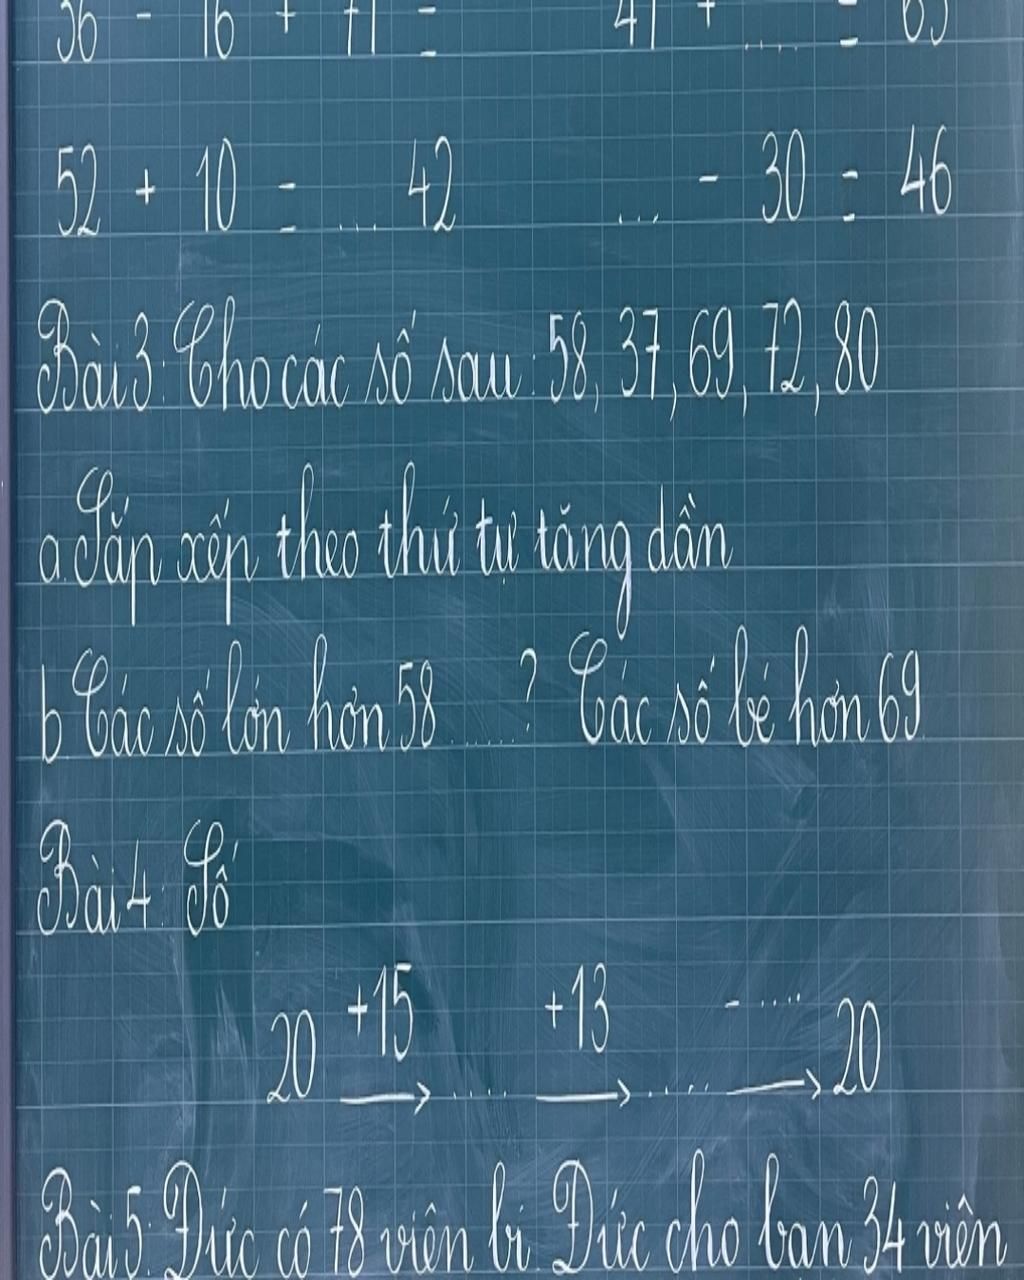 36 - 16 + 71 = 41 + ..... = 65
52 + 10 = ... 42 ... - 30 = 46
Bài 3: Cho các số sau: 58, 37, 69, 72, 80
a. Sắp xếp theo thứ tự tăng dần
b. Các số lớn hơn 58 ......? Các số bé hơn 69
Bài 4: Số
+15 +13 - .....
20 → .... → ..... → 20
Bài 5: Đức có 78 viên bi. Đức cho bạn 34 viên